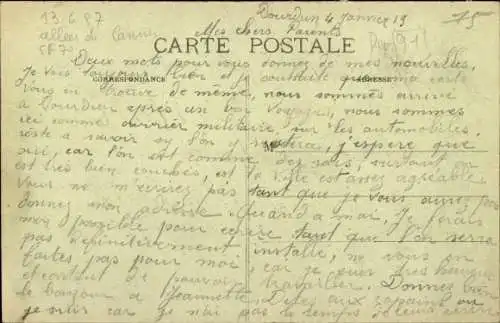 13.6.87
Dourdan 4 Janvier 19
75
allées de Cannes
Mes chers Parents
CARTE POSTALE
Deux mots pour vous donner de mes nouvelles,
Je vais toujours bien et je souhaite que ma carte
CORRESPONDANCE
ADRESSE
vous en trouve de même, nous sommes arrivé
à Dourdan après un bon voyage, nous sommes
ici comme ouvrier militaire, sur les automobiles.
reste a savoir si l'on y restera, j'espère que
oui, car l'on est comme des rois, surtout
est très bien couchés, et la ville est assez agréable
Vous ne m'écrirez pas tant que je vous aurez pas
donnez mon adresse. Quand a moi, Je ferais
mon possible pour écrire tant que l'on serra
pas définitivement installé, ne vous en
faites pas pour moi, car je suis très heureux
et content de pouvoir travailler. Donnez bien
le bonjour a Jeannette. Dites aux
car je n'ai pas le temps de leur écrire